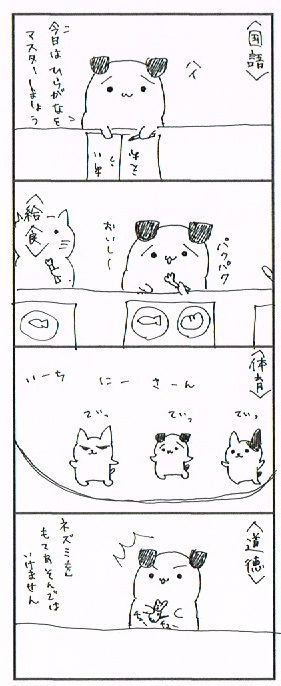 〈国語〉
ハイ
今日はひらがなを
マスターしましょう
〈給食〉
パクパク
おいし〜
〈体育〉
いーち にー さーん
でぃっ
でぃっ
でぃっ
〈道徳〉
ネズミを
もてあそんでは
いけません
チュー